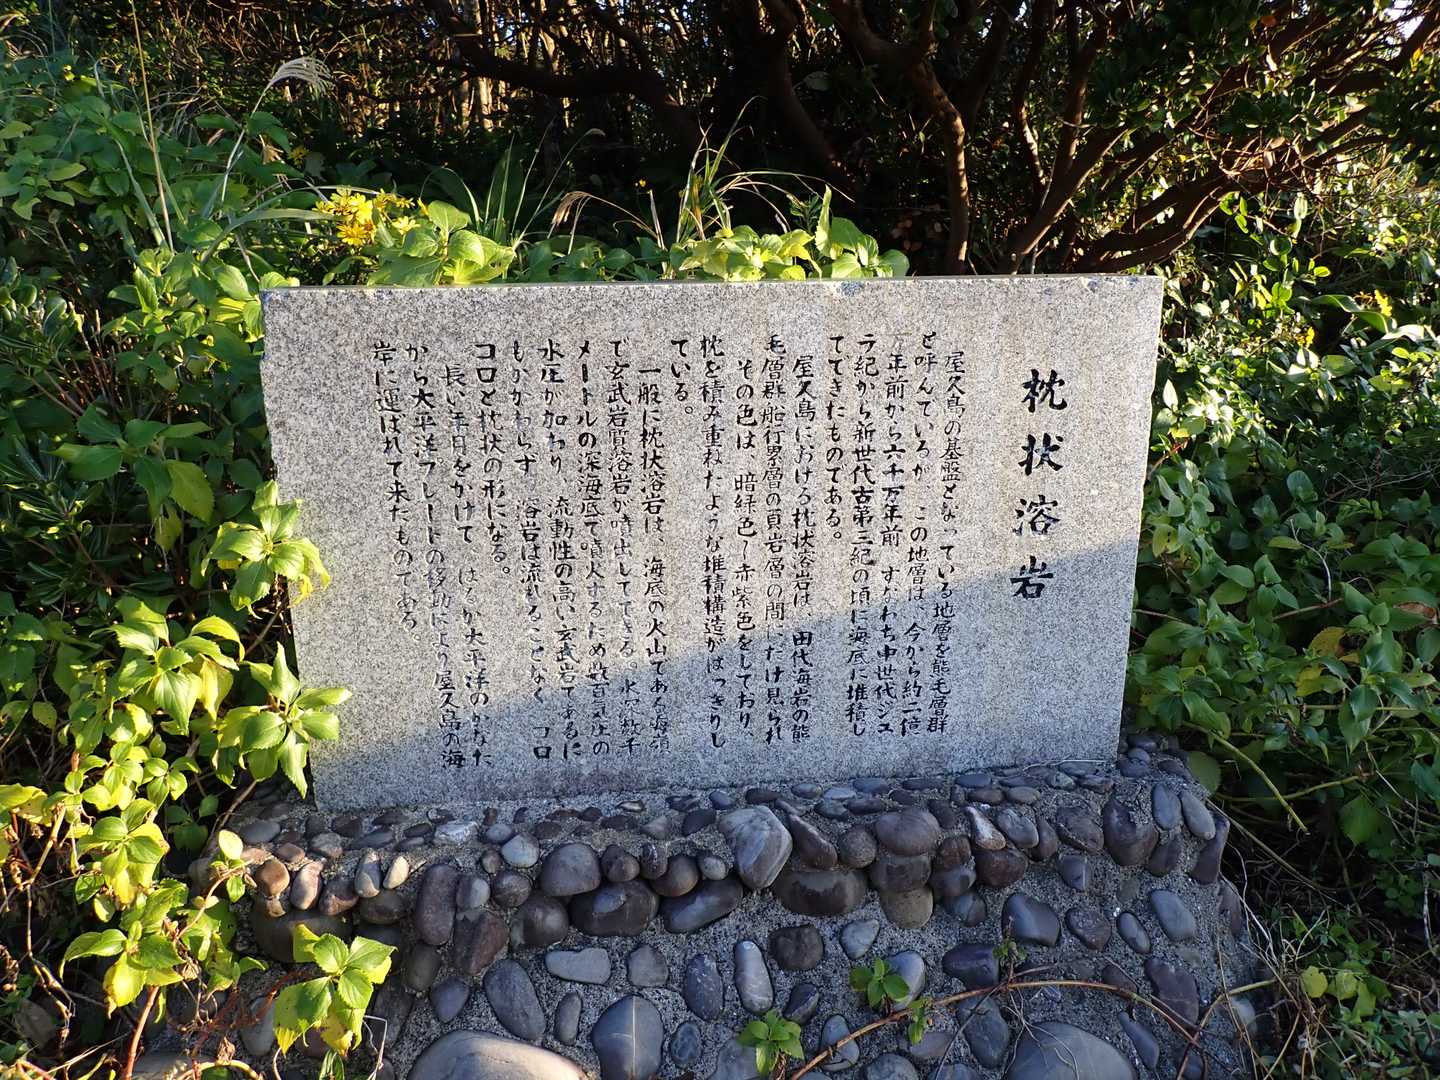 枕状溶岩
屋久島の基盤となっている地層を熊毛層群
と呼んでいるが、この地層は、今から約二億
万年前から六千万年前 すなわち中世代ジュ
ラ紀から新世代古第三紀の頃に海底に堆積し
てできたものである。
屋久島における枕状溶岩は、田代海岩の熊
毛層群船行累層の頁岩層の間にだけ見られ
その色は、暗緑色～赤紫色をしており、
枕を積み重ねたような堆積構造がはっきりし
ている。
一般に枕状溶岩は、海底の火山である海嶺
で玄武岩質溶岩が噴出してできる。水深数千
メートルの深海底で噴火するため数百気圧の
水圧が加わり、流動性の高い玄武岩であるに
もかかわらず、溶岩は流れることなく コロ
コロと枕状の形になる。
長い年月をかけて、はるか太平洋のかなた
から太平洋プレートの移動により屋久島の海
岸に運ばれて来たものである。